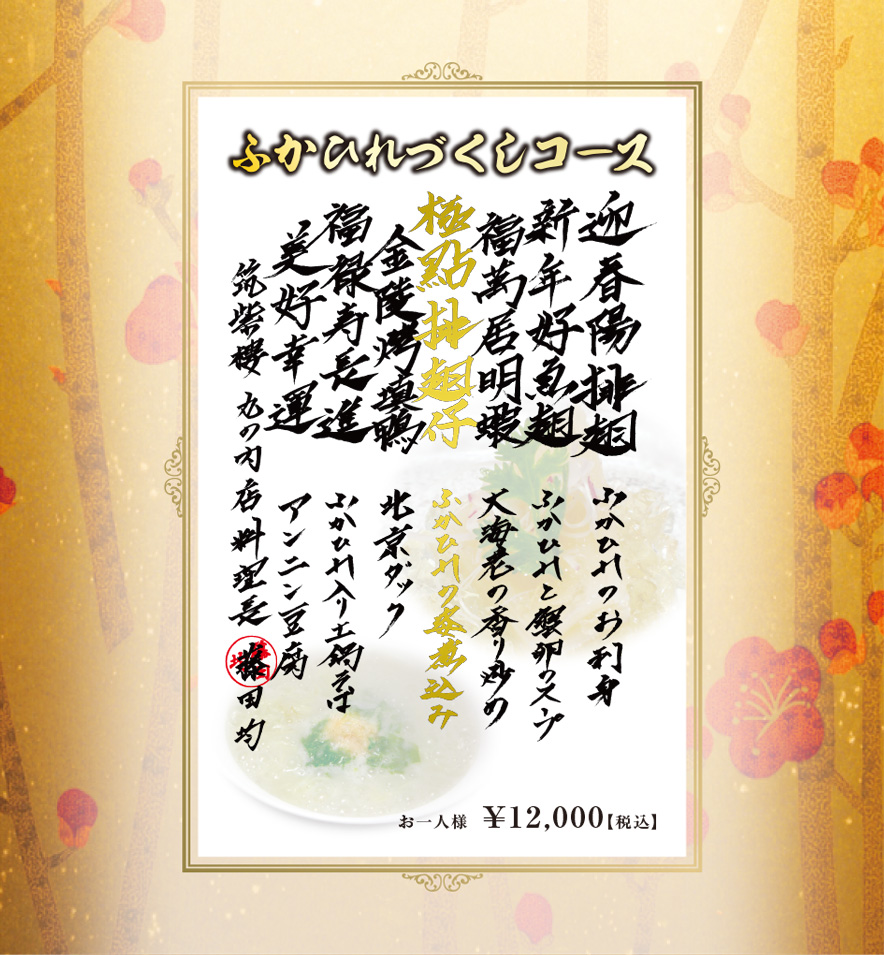 ふかひれづくしコース
迎春陽排翅 ふかひれのお刺身
新年好魚翅 ふかひれと蟹卵のスープ
福萬居明蝦 大海老の香り炒め
極點排翅仔 ふかひれの姿煮込み
金陵烤填鴨 北京ダック
福禄寿長進 ふかひれ入り土鍋そば
美好幸運 アンニン豆腐
筑紫樓 丸の内店 料理長 藤田均
お一人様 ¥12,000【税込】